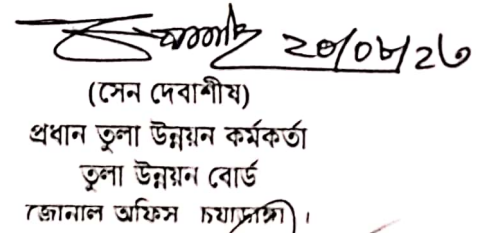 (সেন দেবাশীষ)
প্রধান তুলা উন্নয়ন কর্মকর্তা
তুলা উন্নয়ন বোর্ড
জোনাল অফিস চুয়াডাঙ্গা।